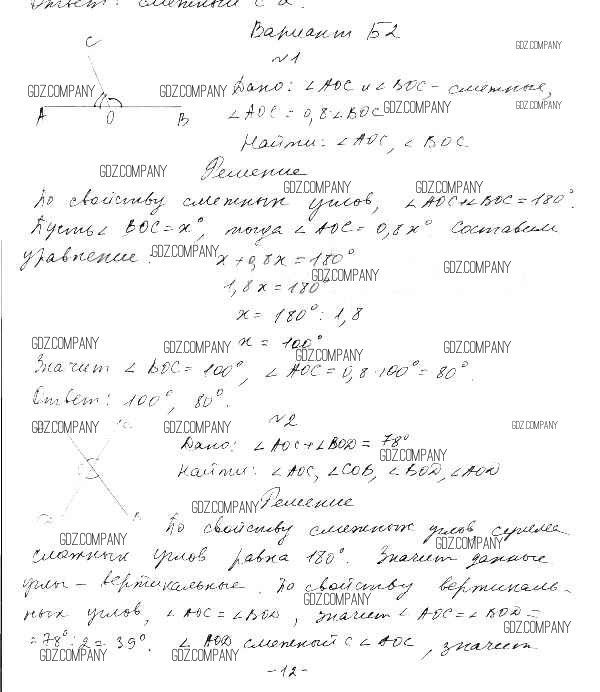 Ответ: смежный с
Вариант Б2
GDZ.COMPANY
№1
C
GDZ.COMPANY GDZ.COMPANY Дано: ∠AOC и ∠BOC - смежные,
A O B ∠AOC = 0,8·∠BOC GDZ.COMPANY GDZ.COMPANY
Найти: ∠AOC, ∠BOC.
GDZ.COMPANY Решение
GDZ.COMPANY GDZ.COMPANY
По свойству смежных углов, ∠AOC+∠BOC=180°.
Пусть ∠BOC=x°, тогда ∠AOC=0,8x°. Составим
уравнение: GDZ.COMPANY x+0,8x=180°
GDZ.COMPANY GDZ.COMPANY
1,8x=180°
x = 180° : 1,8
GDZ.COMPANY GDZ.COMPANY x = 100° GDZ.COMPANY
GDZ.COMPANY
Значит ∠BOC=100°, ∠AOC=0,8·100°=80°.
Ответ: 100°, 80°.
№2
GDZ.COMPANY GDZ.COMPANY GDZ.COMPANY
Дано: ∠AOC+∠BOD=78°
GDZ.COMPANY
Найти: ∠AOC, ∠COB, ∠BOD, ∠AOD
GDZ.COMPANY Решение
По свойству смежных углов, сумма
GDZ.COMPANY GDZ.COMPANY
смежных углов равна 180°. Значит данные
углы - вертикальные. По свойству вертикаль-
GDZ.COMPANY
ных углов, ∠AOC=∠BOD, значит ∠AOC=∠BOD=
GDZ.COMPANY
=78°:2=39°. ∠AOD смежный с ∠AOC, значит
GDZ.COMPANY GDZ.COMPANY GDZ.COMPANY
-12-